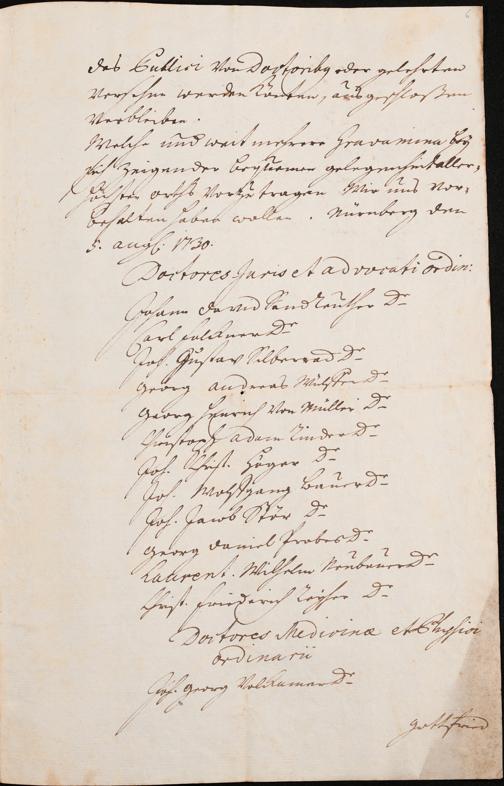 6
des Publici von Doctoribus oder gelehrten
versehen werden könten, ausgeschloßen
verbleiben.
Welche und weit mehrere Gravamina bey
sich zeigender bequemen gelegenheit aller-
höchster orths vorzutragen Wir uns vor-
behalten haben wollen. Nürnberg den
5. aug. 1730.
Doctores Juris et advocati ordin:
Johann David Dr
Carl Falckner Dr
Joh. Gustav Silberrad Dr
Georg andreas Dr
Georg Henrich von Müller Dr
Christoph adam Dr
Joh. Christ. Dr
Joh. Wolffgang Bauer Dr
Joh. Jacob Stör Dr
Georg Daniel Probes Dr
Laurent. Wilhelm Neubauer Dr
Christ. Friederich Dr
Doctores Medicinæ et Physici
ordinarii
Joh. Georg Volkamer Dr
Gottfried